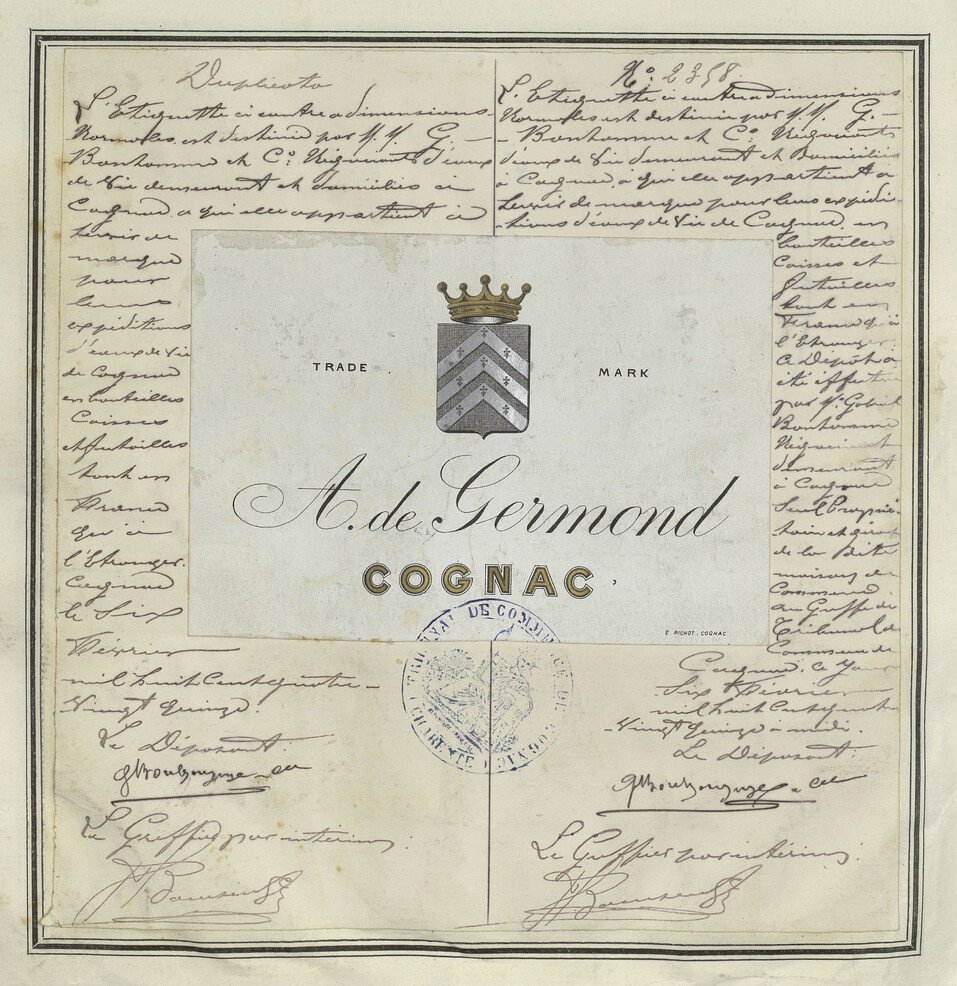 Duplicata
L'Etiquette ci contre a dimensions
Normales est destinée par M. M. G.
Bonhomme et Co. Négociants d'eaux
de Vie demeurant et domiciliés à
Cognac, à qui elle appartient à
servir de
marque
pour
leurs
expéditions
d'eaux de Vie
de Cognac
en bouteilles
Caisses
et futailles
tant en
France
qu'à
l'Etranger.
Cognac
le Six
Février
mil huit Cent quatre-
Vingt quinze.
Le Déposant:
GBonhomme & Co
Le Greffier par intérim:
No. 2358.
L'Etiquette ci contre a dimensions
Normales est destinée par M. M. G.
Bonhomme et Co. Négociants
d'eaux de Vie demeurant et domiciliés
à Cognac, à qui elle appartient à
servir de marque pour leurs expédi-
-tions d'eaux de Vie de Cognac, en
bouteilles
Caisses et
futailles
tant en
France qu'à
l'Etranger.
Ce Dépôt a
été effectué
par M. Gabriel
Bonhomme
Négociant
demeurant
à Cognac
Seul Proprié-
taire et gérant
de la dite
maison de
Commerce
au Greffe du
Tribunal de
Commerce de
Cognac, ce jour
Six Février
mil huit Cent quatre
-Vingt Quinze à midi.
Le Déposant:
GBonhomme & Co
Le Greffier par intérim:
TRADE MARK
A. de Germond
COGNAC
E. PICHOT, COGNAC
TRIBUNAL DE COMMERCE DE COGNAC
CHARENTE